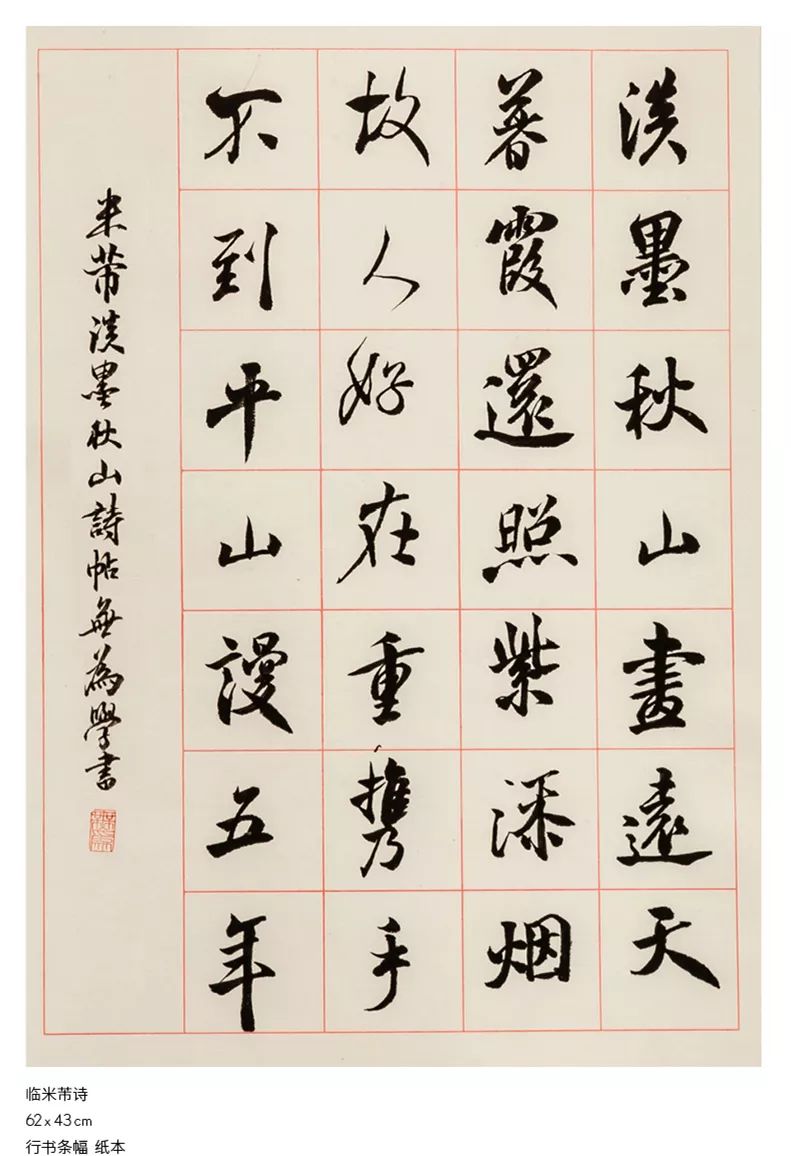 淡墨秋山畫遠天
暮霞還照紫添烟
故人好在重携手
不到平山謾五年
米芾淡墨秋山詩帖無為學書
临米芾诗
62 x 43 cm
行书条幅 纸本